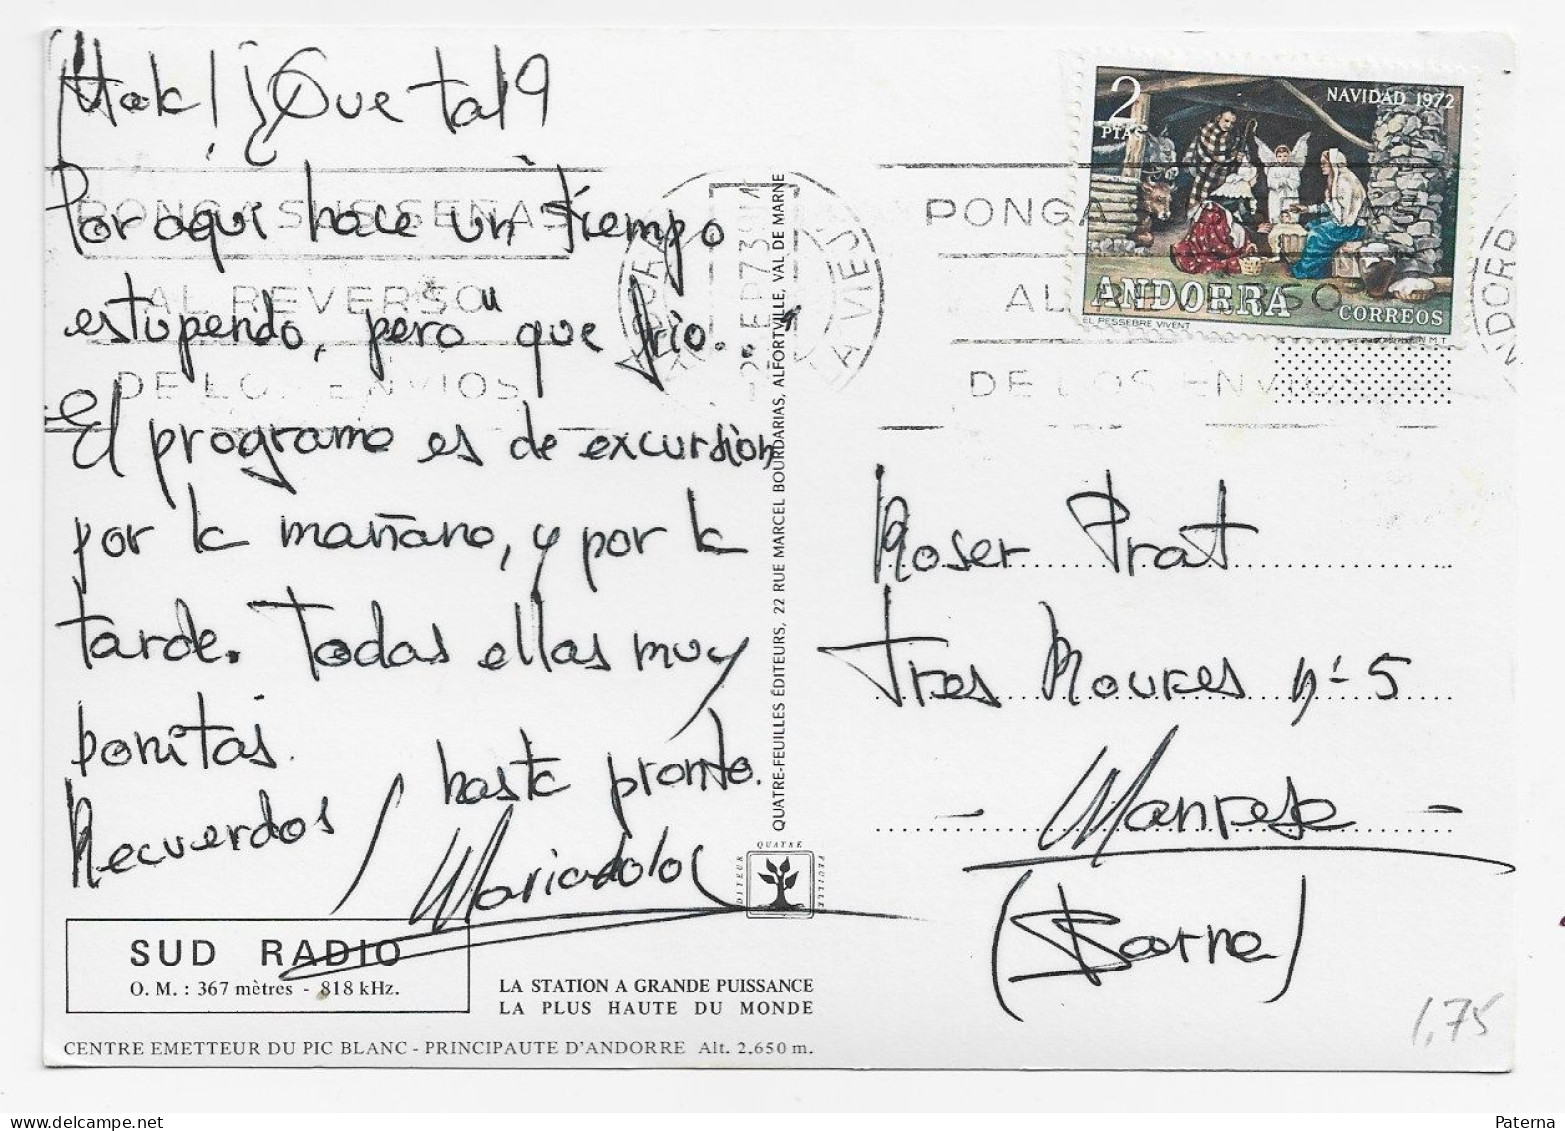 ¡Hola! ¿Que tal?
Por aqui hace un tiempo
estupendo, pero que frio..
El programa es de excursion
por la mañana, y por la
tarde. Todas ellas muy
bonitas.
Recuerdos / hasta pronto.
Mariadolo
SUD RADIO
O. M. : 367 mètres - 818 kHz.
LA STATION A GRANDE PUISSANCE
LA PLUS HAUTE DU MONDE
CENTRE EMETTEUR DU PIC BLANC - PRINCIPAUTE D'ANDORRE Alt. 2.650 m.
QUATRE-FEUILLES ÉDITEURS, 22 RUE MARCEL BOURDARIAS, ALFORTVILLE, VAL DE MARNE
QUATRE
FEUILLE
DITEUR
2
PTAS
NAVIDAD 1972
ANDORRA
CORREOS
EL PESSEBRE VIVENT
PONGA SUS SEÑAS
AL REVERSO
DE LOS ENVIOS
PONGA SEÑAS
AL REVERSO
DE LOS ENVIOS
Roser Prat
Tres Roures nº 5
- Manresa -
(Barna)
1,75
Paterna